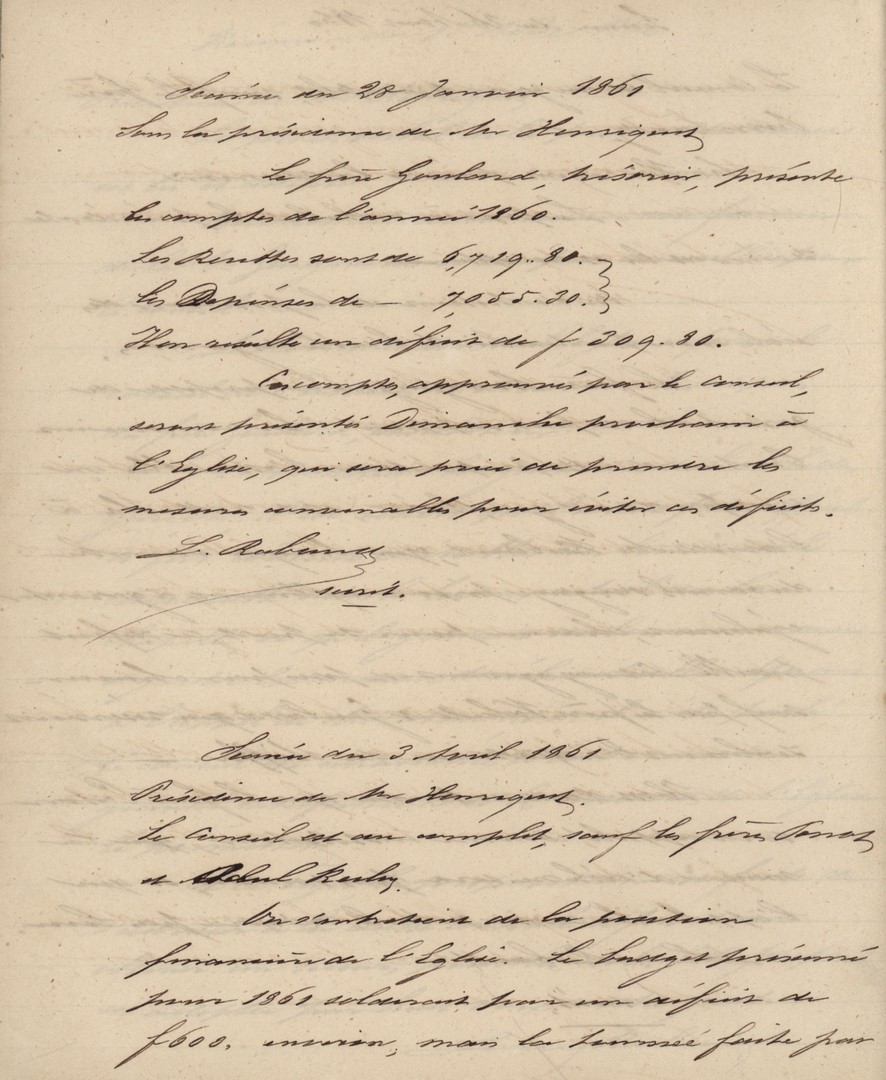 Séance du 28 Janvier 1861
Sous la présidence de Mr Henriquet
Le frère Goulard, trésorier, présente
les comptes de l'année 1860.
Les Recettes sont de 6,719..80.
Les Dépenses de — 7,055.30.
Il en résulte un déficit de f 309.80.
Ces comptes, approuvés par le conseil,
seront présentés Dimanche prochain à
l'Eglise, qui sera priée de prendre les
mesures convenables pour éviter ces déficits.
L. Rabaud
secrét.
Séance du 3 Avril 1861
Présidence de Mr Henriquet.
Le Conseil est au complet, sauf les frères
et
On s'entretient de la position
financière de l'Eglise. Le budget présumé
pour 1861 solderait par un déficit de
f 600, environ, mais la tournée faite par